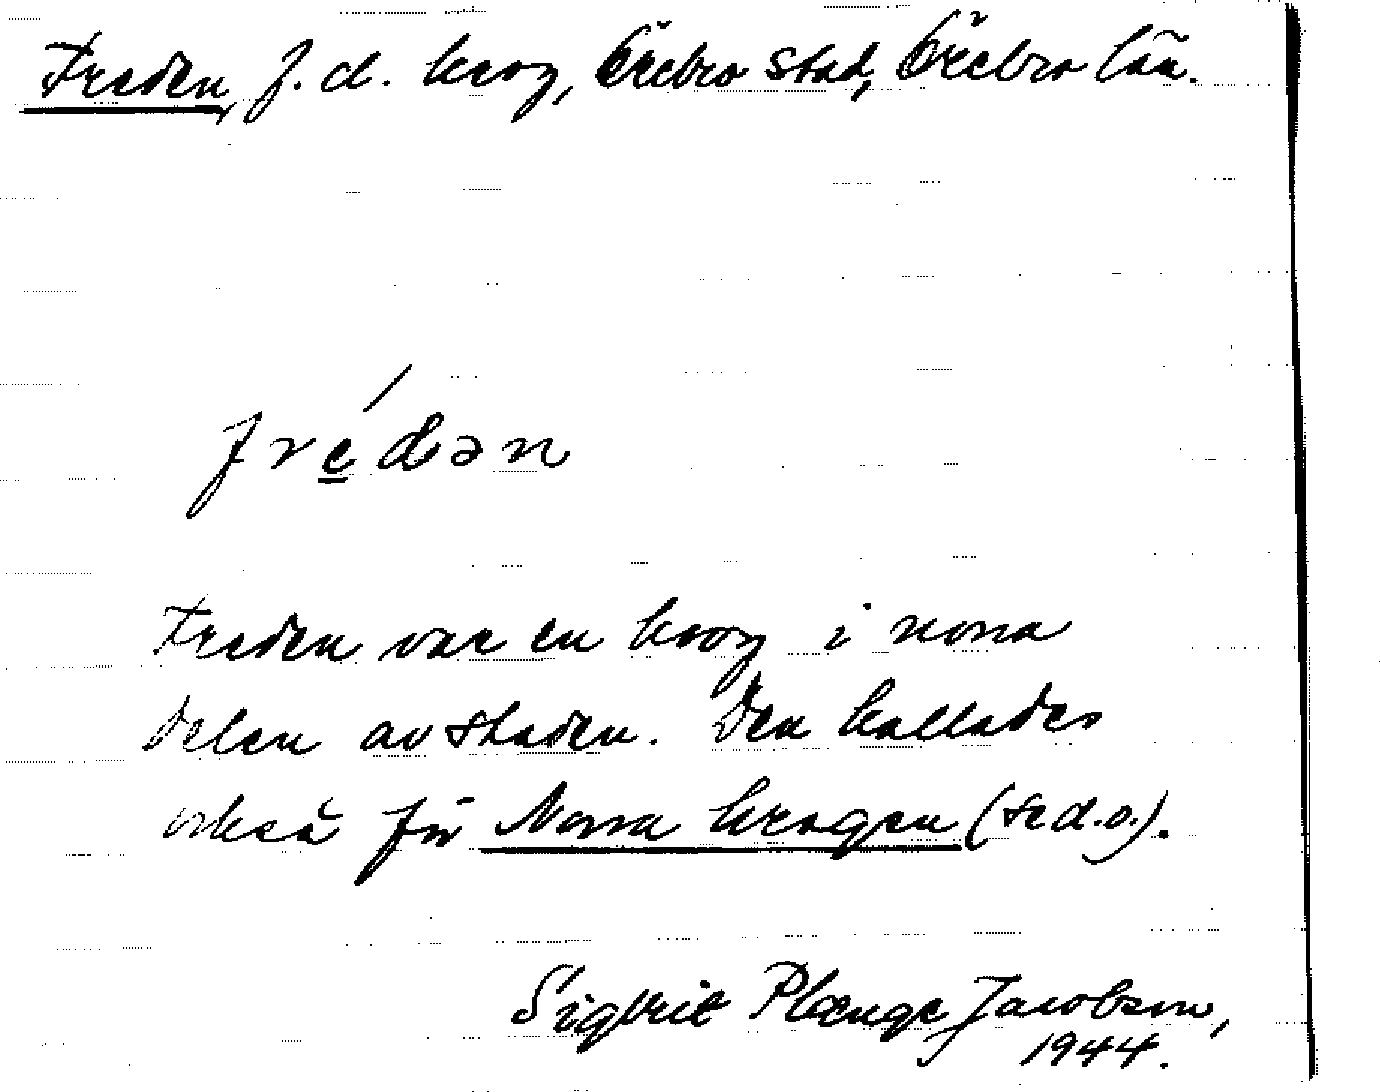 Freden, f.d. krog, Örebro stad, Örebro län.
fré̱dən
Freden var en krog i norra
delen av staden. Den kallades
också för Norra krogen (se d.o.).
Sigbrit Plænge Jacobson,
1944.